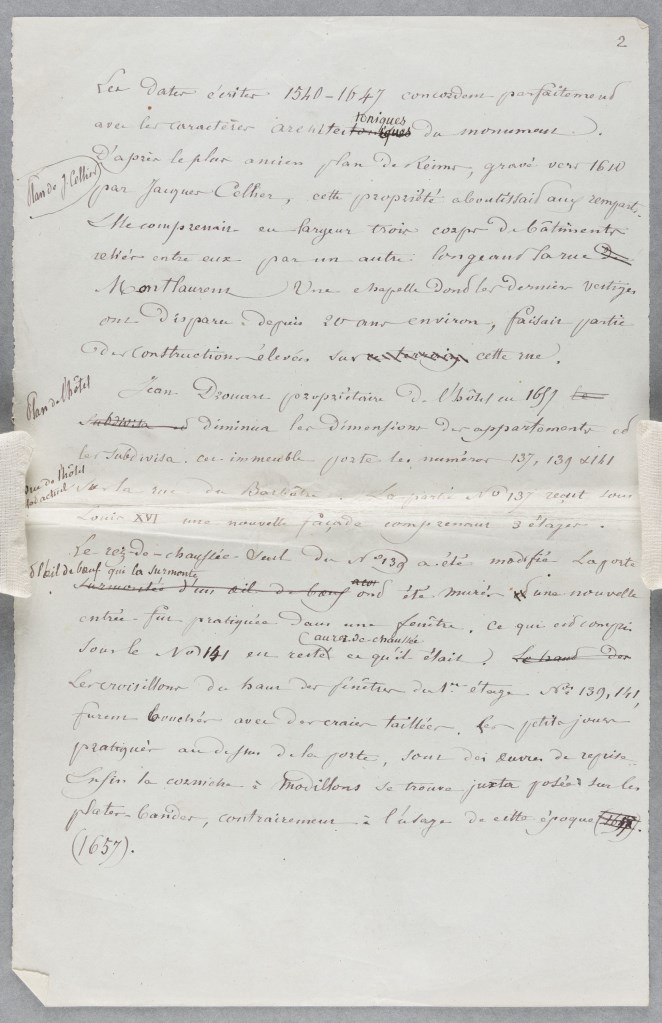 2
Les dates écrites 1540-1647 concordent parfaitement
avec les caractères architectoniques du monument.
Plan de J. Cellier
D'après le plus ancien plan de Reims, gravé vers 1610
par Jacques Cellier, cette propriété aboutissait aux remparts.
Elle comprenait en largeur trois corps de bâtiments
reliés entre eux par un autre longeant la rue de
Montlaurent Une chapelle dont les derniers vestiges
ont disparu depuis 20 ans environ, faisait partie
des constructions élevées sur ce terrain cette rue.
Plan de l'hôtel
Jean Drouart propriétaire de l'hôtel en 1657 Le
subdivisa et diminua les dimensions des appartements et
les subdivisa. cet immeuble porte les numéros 137, 139 & 141
vue de l'hôtel
actuel
Sur la rue du Barbâtre. La partie No 137 reçut sous
Louis XVI une nouvelle façade comprenant 3 étages.
Le rez-de-chaussée seul du No 139 a été modifié La porte
& l'œil de bœuf qui la surmonte
surmontée d'un œil de bœuf ont été murés & une nouvelle
entrée fut pratiquée dans une fenêtre. ce qui est compris
au rez-de-chaussée
sous le No 141 est resté ce qu'il était. Le haut des
Les croisillons du haut des fenêtres du 1er étage Nos 139, 141,
furent bouchés avec des craies taillées. Les petits jours
pratiqués au dessus de la porte, sont des œuvres de reprise.
Enfin la corniche à modillons se trouve juxta posée sur les
plates-bandes, contrairement à l'usage de cette époque
(1657).